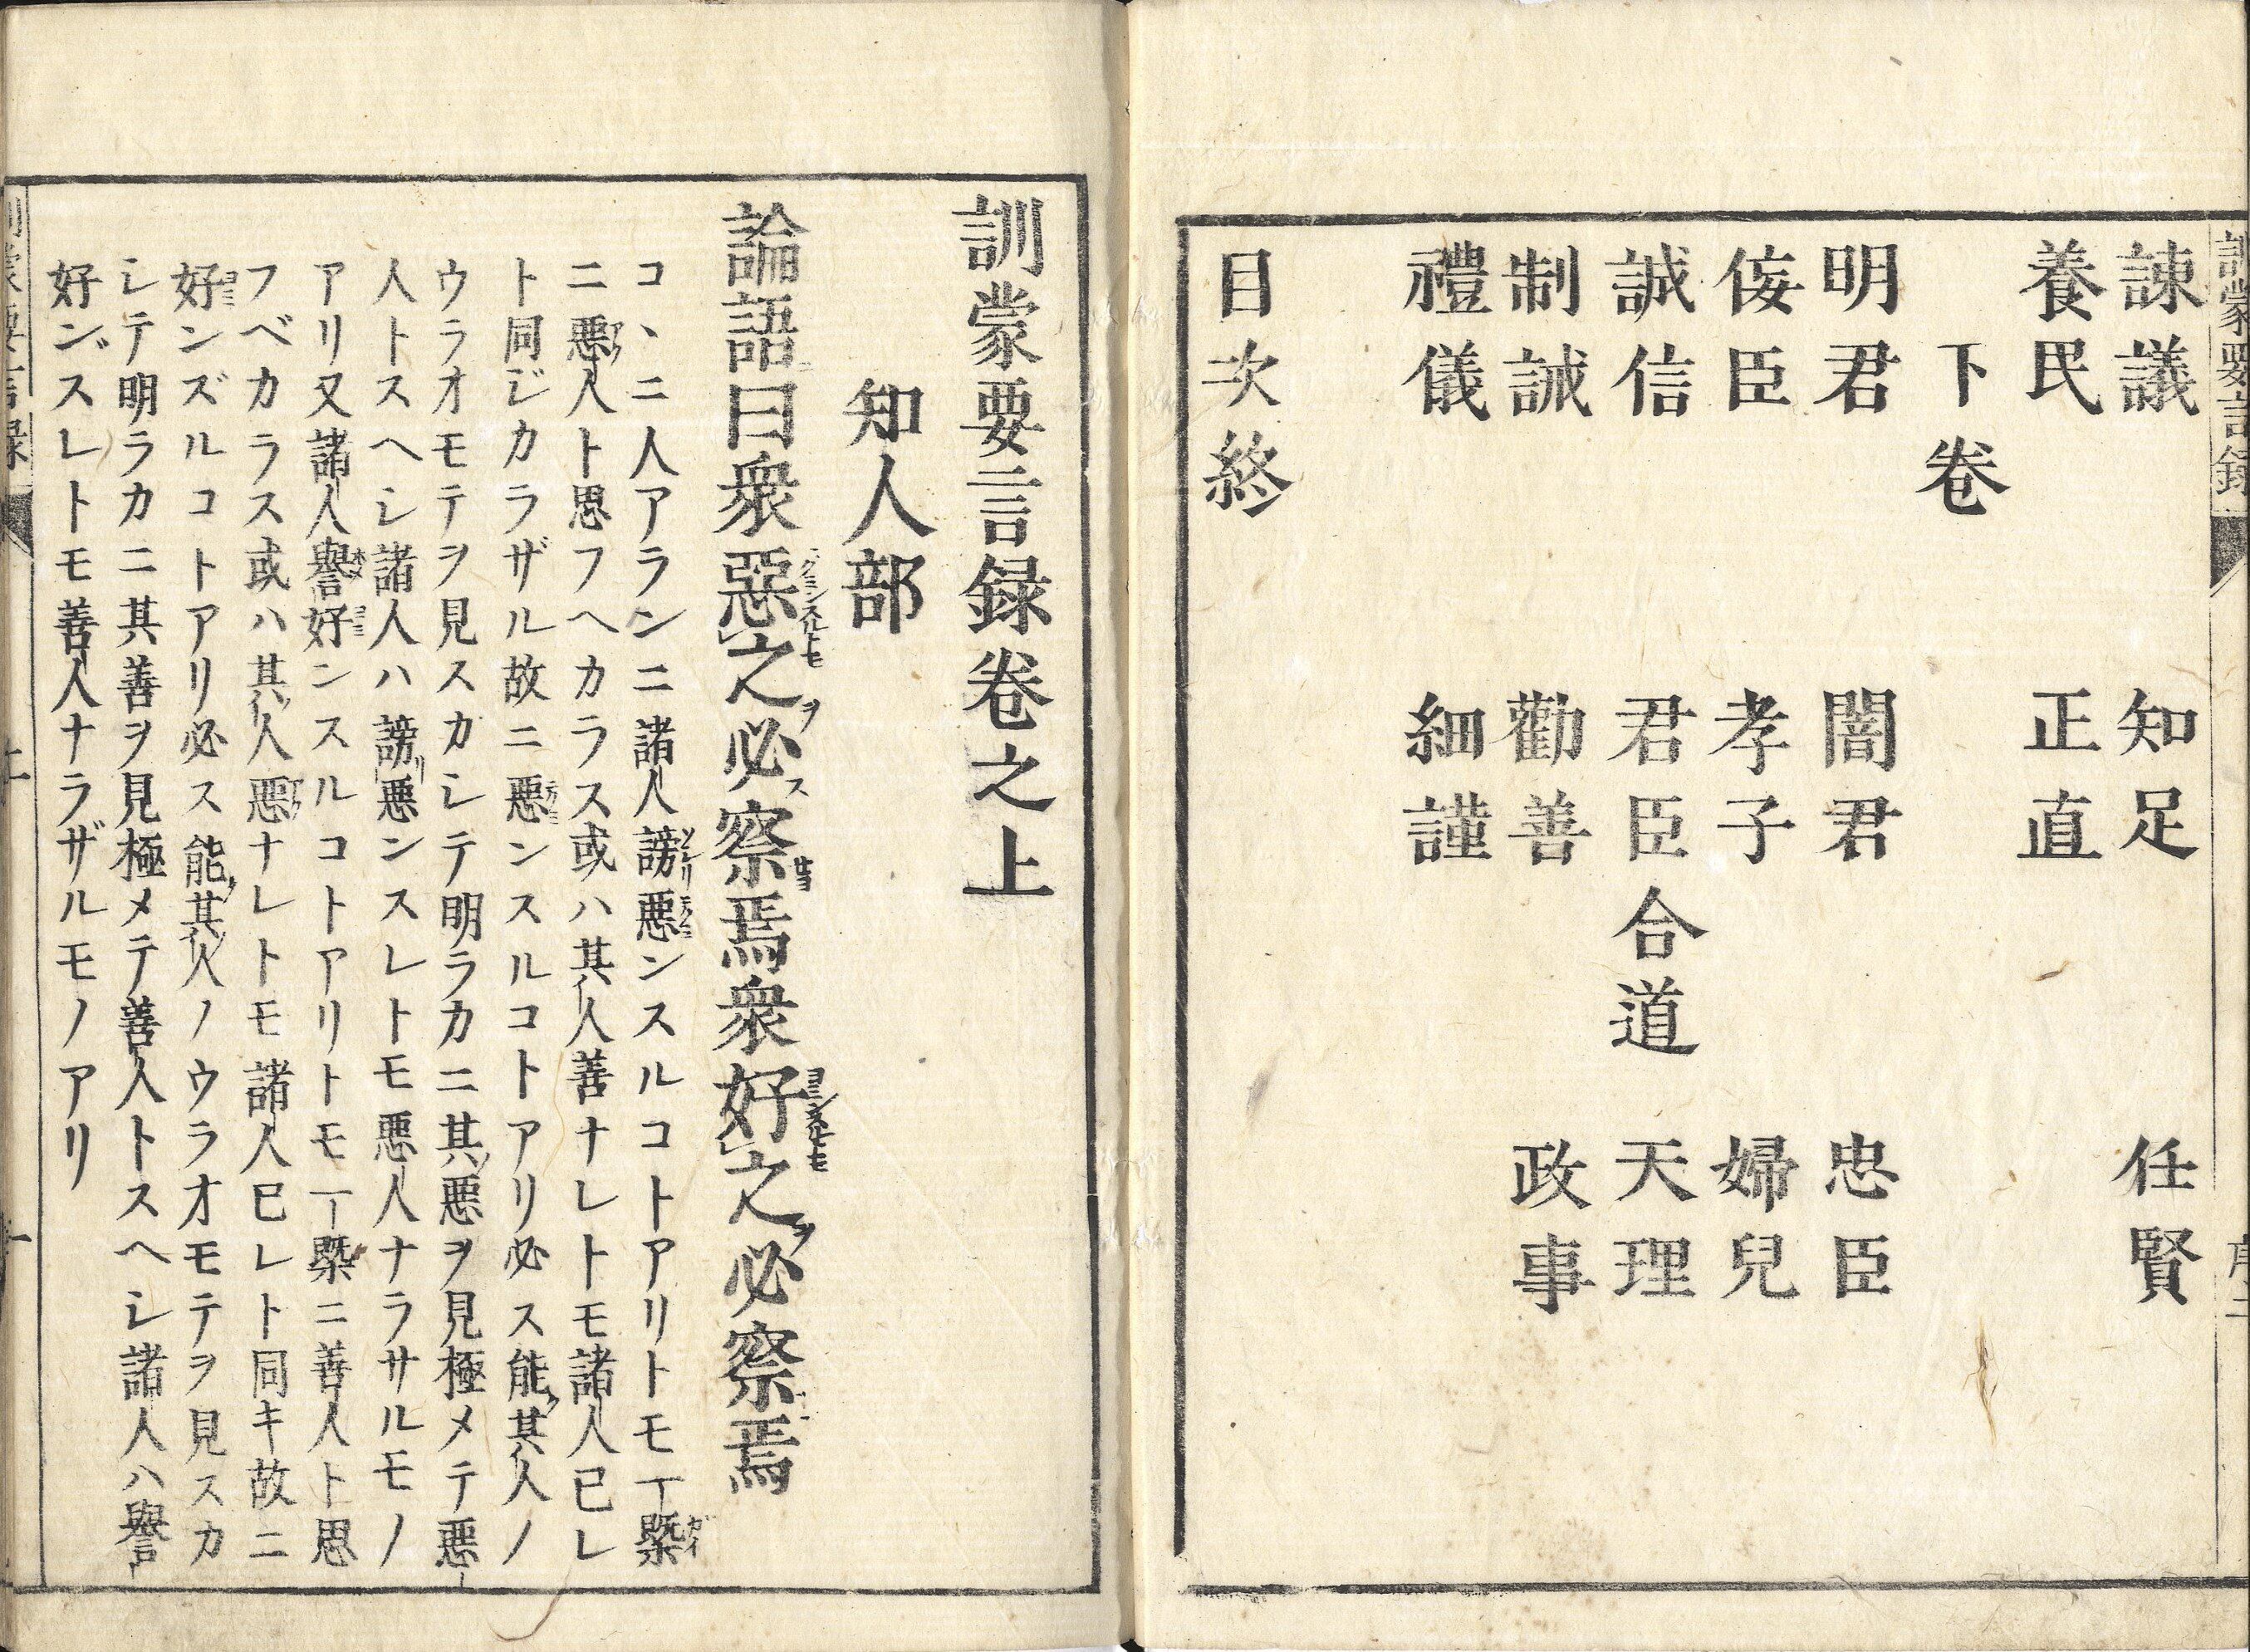 訓蒙要言録
諫議 知足 任賢
養民 正直
下卷
明君 闇君 忠臣
侫臣 孝子 婦兒
誠信 君臣合道 天理
制誡 勸善 政事
禮儀 細謹
目次終
訓蒙要言録卷之上
知人部
論語曰衆惡之必察焉衆好之必察焉
コヽニ人アランニ諸人謗惡ンスルコトアリトモ一槩
ニ悪人ト思フヘカラス或ハ其人善ナレトモ諸人己レ
ト同ジカラザル故ニ悪ンスルコトアリ必ス能其人ノ
ウラオモテヲ見スカシテ明ラカニ其悪ヲ見極メテ悪
人トスヘシ諸人ハ謗悪ンスレトモ悪人ナラサルモノ
アリ又諸人譽好ンスルコトアリトモ一槩ニ善人ト思
フベカラス或ハ其人悪ナレトモ諸人己レト同キ故ニ
好ンズルコトアリ必ス能其人ノウラオモテヲ見スカ
シテ明ラカニ其善ヲ見極メテ善人トスヘシ諸人ハ譽
好ンズスレトモ善人ナラザルモノアリ